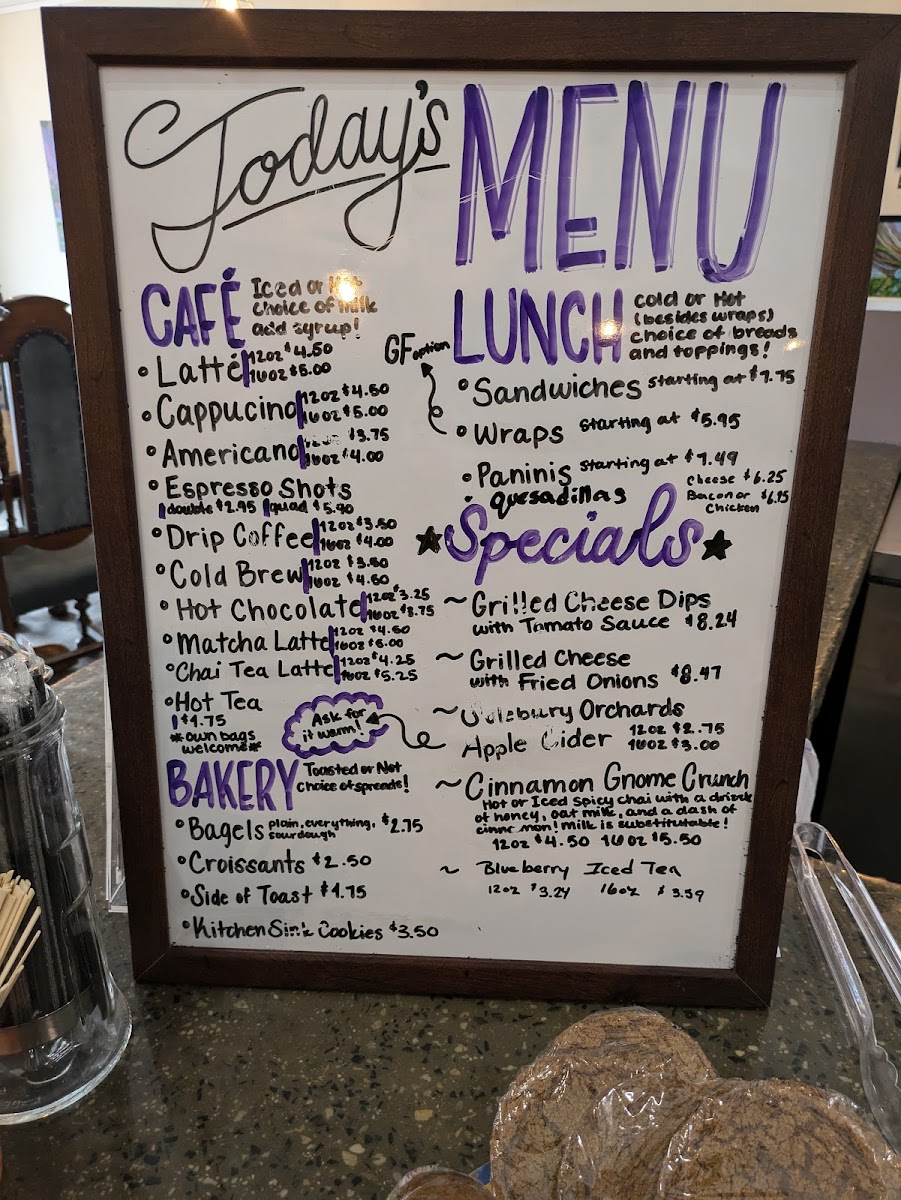 Today's MENU
CAFÉ
Iced or Hot
choice of milk
add syrup!
• Latté 12oz $4.50
16oz $5.00
• Cappucino 12oz $4.50
16oz $5.00
• Americano $3.75
16oz $4.00
• Espresso Shots
double $2.95 quad $5.90
• Drip Coffee 12oz $3.50
16oz $4.00
• Cold Brew 12oz $3.50
16oz $4.50
• Hot Chocolate 12oz $3.25
16oz $3.75
• Matcha Latte 12oz $4.50
16oz
• Chai Tea Latte 12oz $4.25
16oz $5.25
• Hot Tea
$1.75
*own bags
welcome*
Ask for
it warm!
BAKERY
Toasted or Not
choice of spreads!
• Bagels plain, everything, $2.75
sourdough
• Croissants $2.50
• Side of Toast $1.75
• Kitchen Sink Cookies $3.50
LUNCH
cold or Hot
(besides wraps)
choice of breads
and toppings!
GF option
• Sandwiches starting at $7.75
• Wraps starting at $5.95
• Paninis starting at $7.49
• quesadillas
cheese $6.25
Bacon or $6.95
chicken
★ Specials ★
~ Grilled Cheese Dips
with Tomato Sauce $8.24
~ Grilled Cheese
with Fried Onions $8.47
~ Orchards
Apple Cider 12oz $2.75
16oz $3.00
~ Cinnamon Gnome Crunch
Hot or Iced spicy chai with a drizzle
of honey, oat milk, and a dash of
milk is substitutable!
12oz $4.50 16oz $5.50
~ Blueberry Iced Tea
12oz $3.24 16oz $3.59